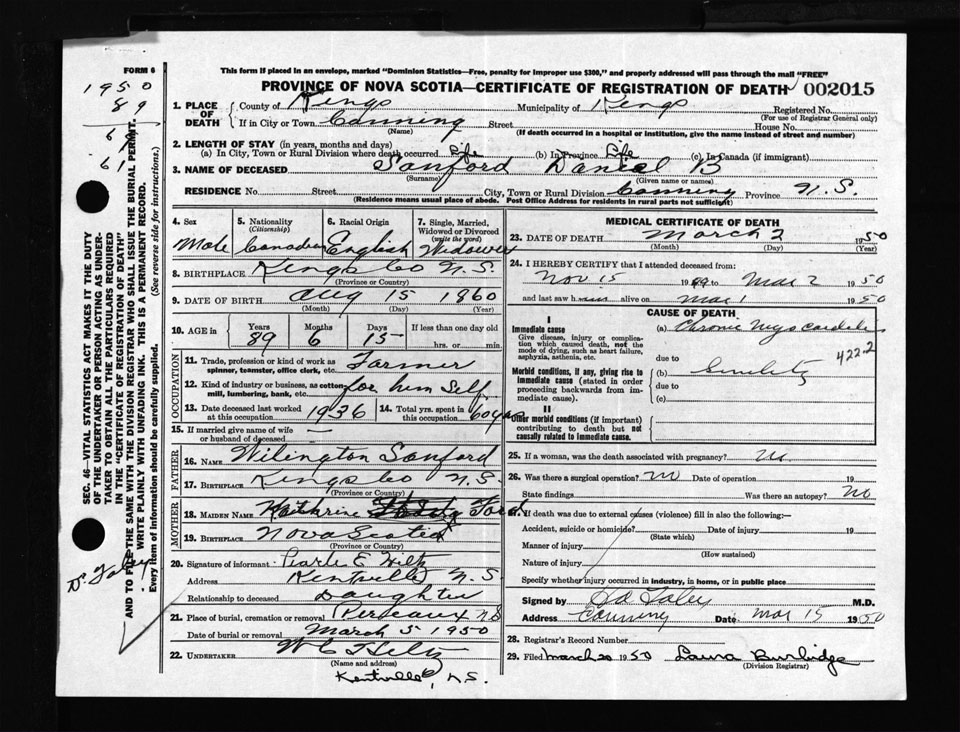 FORM 6
This form if placed in an envelope, marked "Dominion Statistics—Free, penalty for improper use $300," and properly addressed will pass through the mail "FREE"
PROVINCE OF NOVA SCOTIA—CERTIFICATE OF REGISTRATION OF DEATH 002015
1950
89
6
61
1. PLACE OF DEATH
County of Kings Municipality of Kings Registered No.
(For use of Registrar General only)
If in City or Town Canning Street House No.
(Name) (If death occurred in a hospital or institution, give the name instead of street and number)
2. LENGTH OF STAY (in years, months and days)
(a) In City, Town or Rural Division where death occurred Life (b) In Province Life (c) In Canada (if immigrant)
3. NAME OF DECEASED Sanford Daniel B
(Surname) (Given name or names)
RESIDENCE No. Street City, Town or Rural Division Canning Province N.S.
(Residence means usual place of abode. Post Office Address for residents in rural parts not sufficient)
4. Sex Male
5. Nationality (Citizenship) Canadian
6. Racial Origin English
7. Single, Married, Widowed or Divorced (write the word) Widower
8. BIRTHPLACE Kings Co N.S.
(Province or Country)
9. DATE OF BIRTH Aug 15 1860
(Month) (Day) (Year)
10. AGE in Years 89 Months 6 Days 15 If less than one day old
hrs. or min.
OCCUPATION
11. Trade, profession or kind of work as spinner, teamster, office clerk, etc. Farmer
12. Kind of industry or business, as cotton mill, lumbering, bank, etc. for him Self
13. Date deceased last worked at this occupation 1936
14. Total yrs. spent in this occupation 60 yrs
15. If married give name of wife or husband of deceased —
FATHER
16. NAME Wilington Sanford
17. BIRTHPLACE Kings Co N.S.
(Province or Country)
MOTHER
18. MAIDEN NAME Kathrine Ford
19. BIRTHPLACE Nova Scotia
(Province or Country)
20. Signature of informant Pearle E
Address Kentville N.S.
Relationship to deceased Daughter
21. Place of burial, cremation or removal Pereaux NS
Date of burial or removal March 5 1950
22. UNDERTAKER W C Hiltz
(Name and address)
Kentville, N.S.
MEDICAL CERTIFICATE OF DEATH
23. DATE OF DEATH March 2 1950
(Month) (Day) (Year)
24. I HEREBY CERTIFY that I attended deceased from:
Nov 15 1949 to Mar 2 1950
and last saw him alive on Mar 1 1950
CAUSE OF DEATH
I
Immediate cause
Give disease, injury or complication which caused death, not the mode of dying, such as heart failure, asphyxia, asthenia, etc.
(a) Chronic Myocarditis
due to
422.2
Morbid conditions, if any, giving rise to immediate cause (stated in order proceeding backwards from immediate cause).
(b) Senility
due to
(c)
II
Other morbid conditions (if important) contributing to death but not causally related to immediate cause.
25. If a woman, was the death associated with pregnancy?
26. Was there a surgical operation? No Date of operation 19
State findings Was there an autopsy? No
27. If death was due to external causes (violence) fill in also the following:—
Accident, suicide or homicide? Date of injury 19
(State which)
Manner of injury
(How sustained)
Nature of injury
Specify whether injury occurred in industry, in home, or in public place
Signed by Foley M.D.
Address Canning Date Mar 15 1950
28. Registrar's Record Number
29. Filed March 20 1950 Laura Burbidge
(Division Registrar)
SEC. 46—VITAL STATISTICS ACT MAKES IT THE DUTY
OF THE UNDERTAKER OR PERSON ACTING AS UNDER-
TAKER TO OBTAIN ALL THE PARTICULARS REQUIRED
IN THE "CERTIFICATE OF REGISTRATION OF DEATH"
AND TO FILE THE SAME WITH THE DIVISION REGISTRAR WHO SHALL ISSUE THE BURIAL PERMIT.
WRITE PLAINLY WITH UNFADING INK. THIS IS A PERMANENT RECORD.
Every item of information should be carefully supplied. (See reverse side for instructions.)
Dr Foley